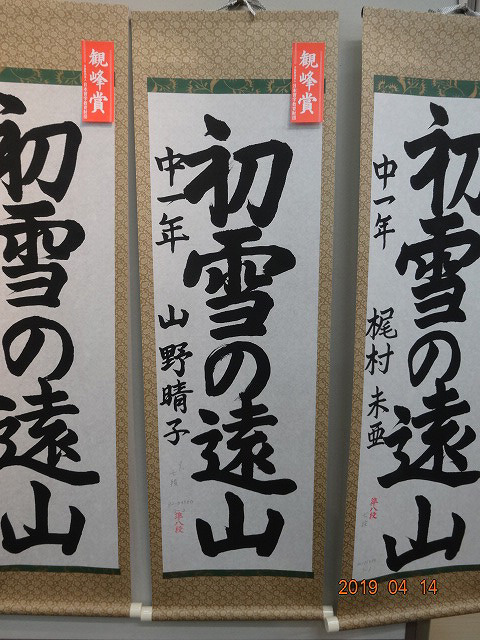 観峰賞
初雪の遠山
観峰賞
初雪の遠山
中一年 山野晴子
準八段
初雪の遠山
中一年 梶村未亜
準八段
2019 04 14